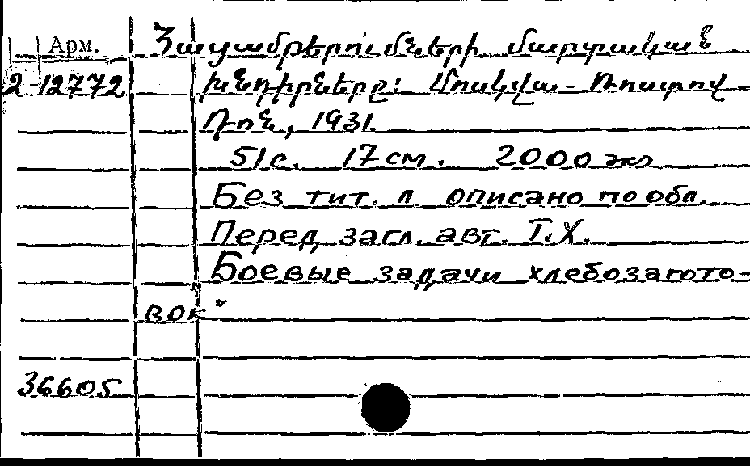 Арм. Հացամբերումների մարտական
2-12772 խնդիրները: Մոսկվա - Ռոստով -
Դոն, 1931
51с. 17 см. 2000 экз
Без тит. л описано по обл.
Перед загл. авт. Т.Х.
Боевые задачи хлебозагото-
вок"
36605